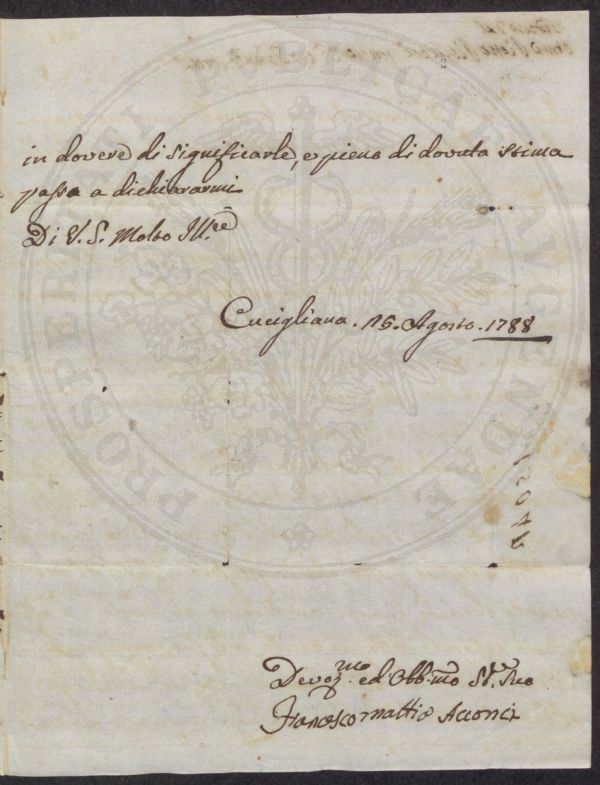 in dovere di significarle, e pieno di dovuta stima
passo a dichiararmi
Di V. S. Molto Ill.re
Cucigliana. 15. Agosto. 1788
Devoz.mo ed Obb.mo Se.re Suo
Francesco Mattio Acconci
PROSPERITATI PUBLICAE AUGENDAE